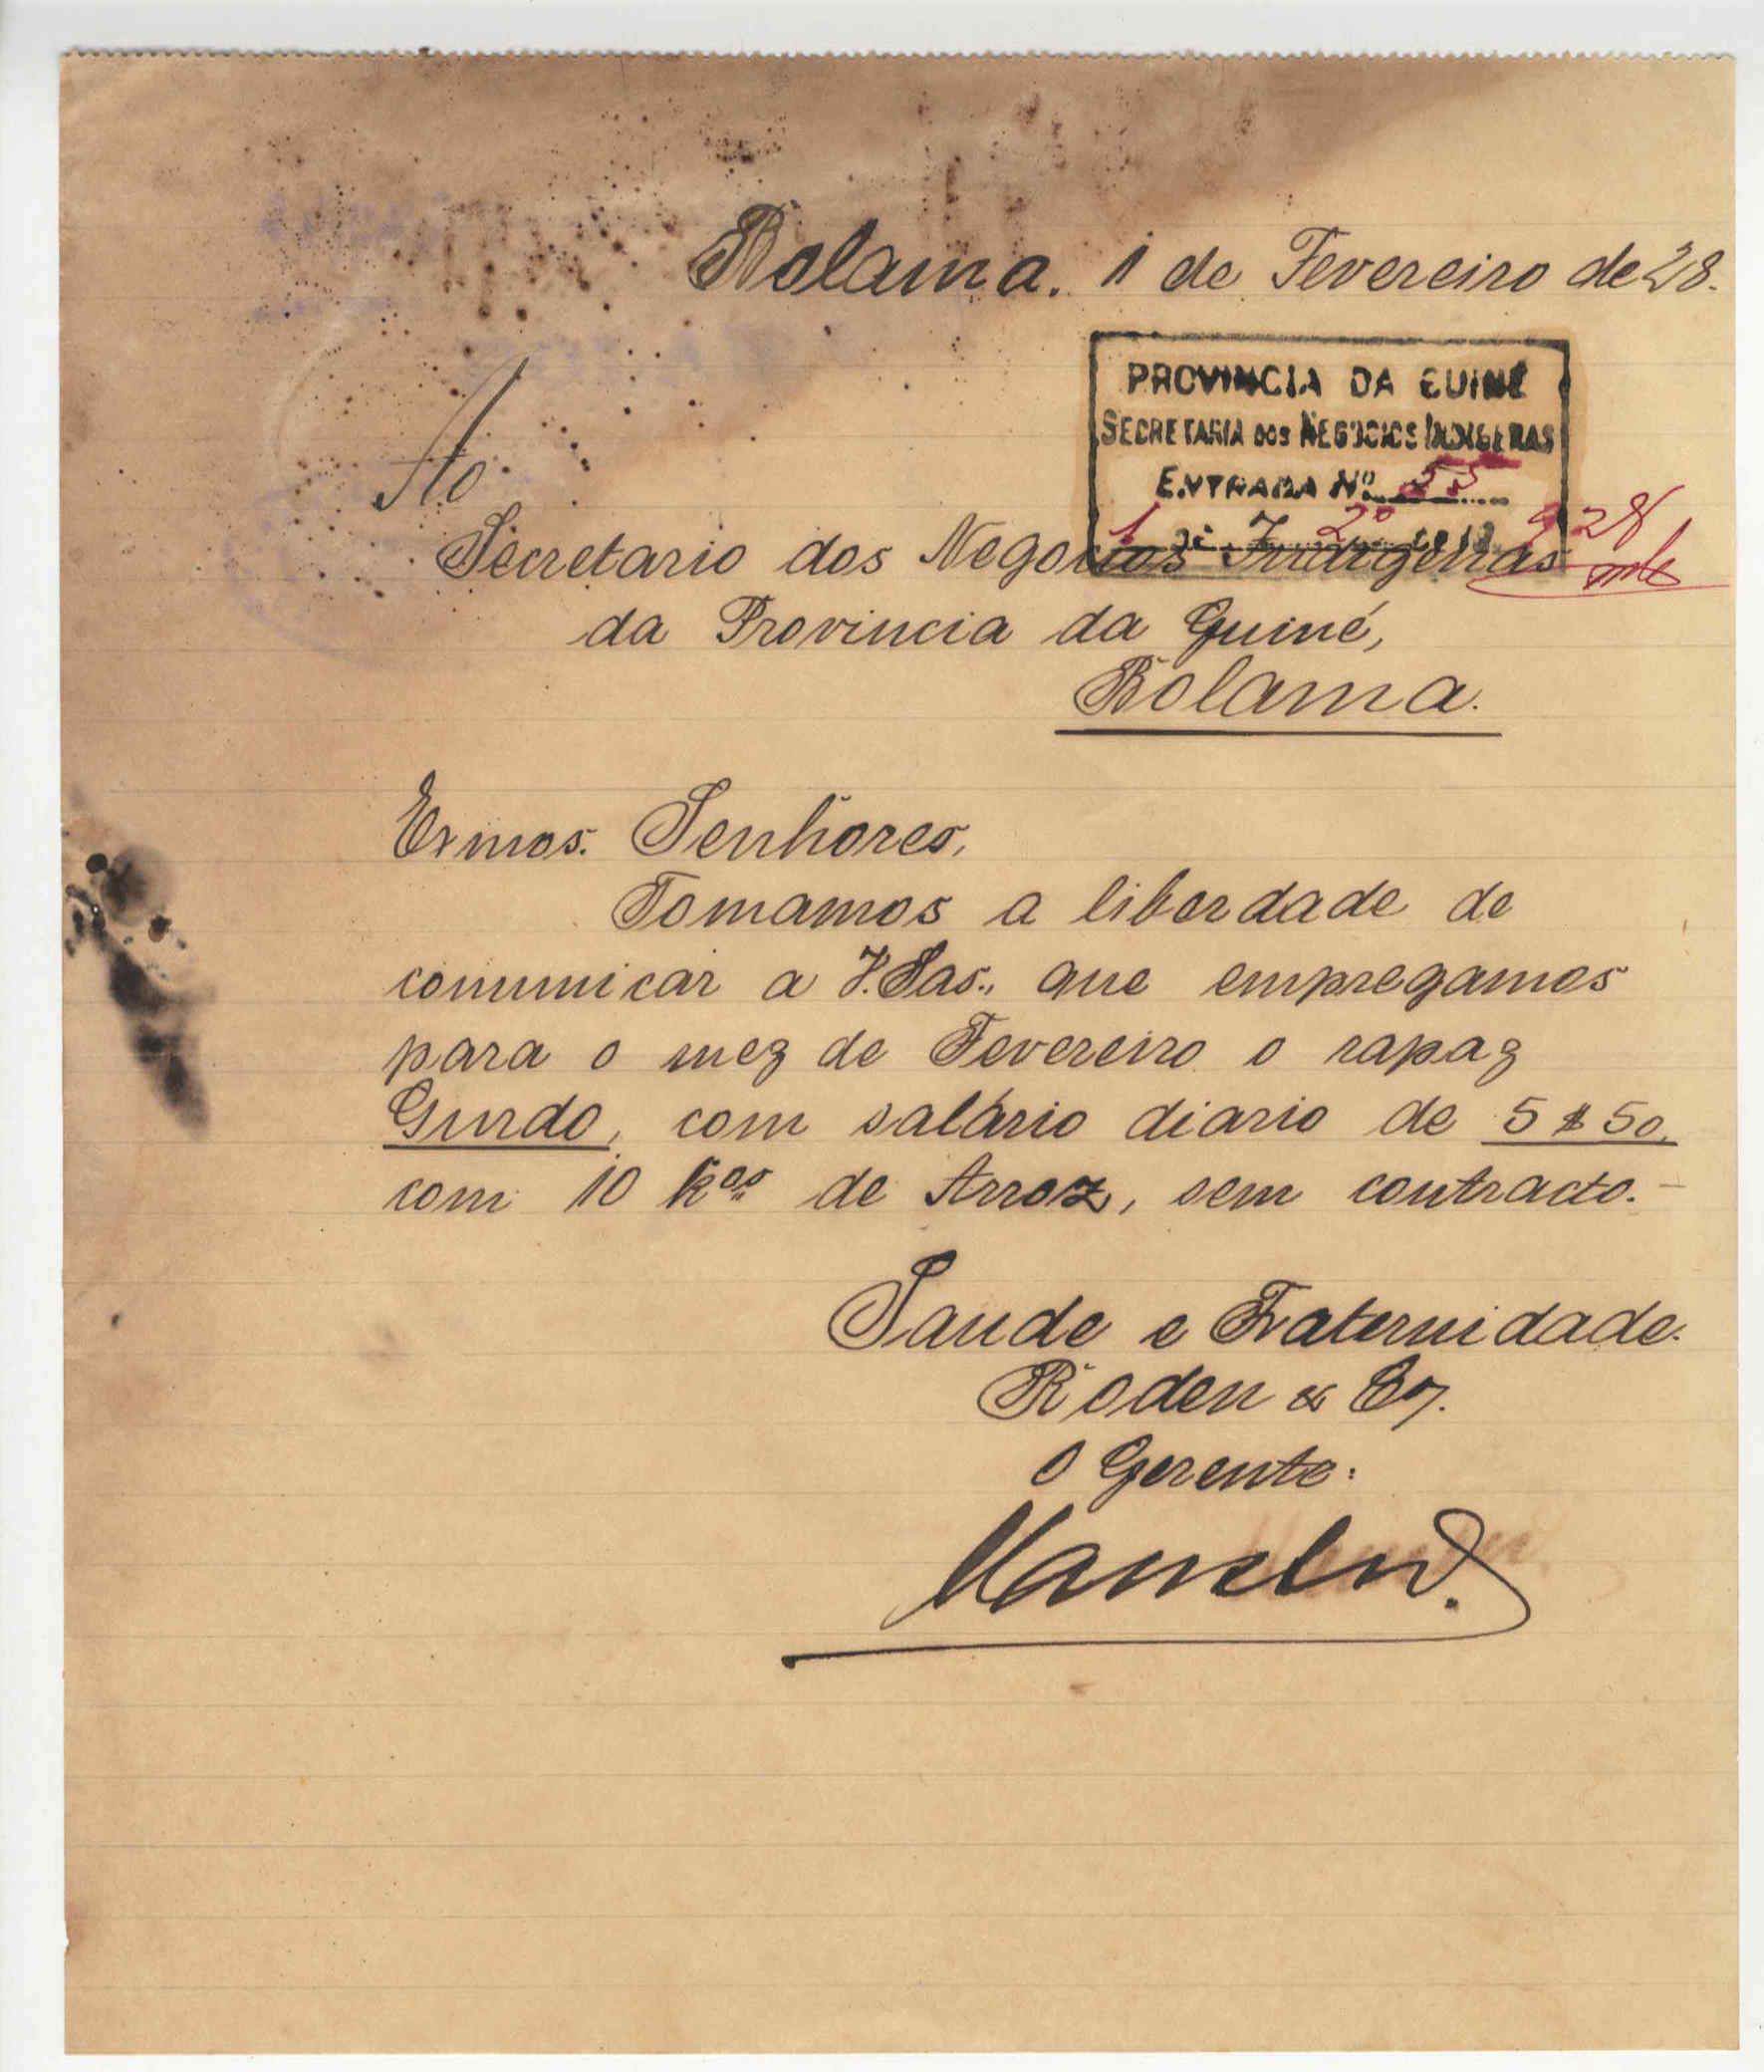 Bolama. 1 de Fevereiro de 28.
PROVINCIA DA GUINÉ
SECRETARIA DOS NEGOCIOS INDIGENAS
ENTRADA Nº 55
1 de 2º de 19 928
Ao
Secretario dos Negocios Indigenas
da Provincia da Guiné,
Bolama.
Exmos. Senhores,
Tomamos a liberdade de
comunicar a V.Sas., que empregamos
para o mez de Fevereiro o rapaz
Gurdo, com salário diario de 5$50,
com 10 kos de Arroz, sem contracto.-
Saude e Fraternidade.
Roden & Co.
O Gerente: